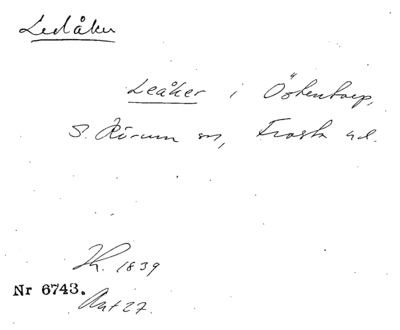 Ledåker
Leåker i Östentorp,
S. Rörum sn, Frosta hd.
Jk. 1839
Nr 6743.
Akt 27.